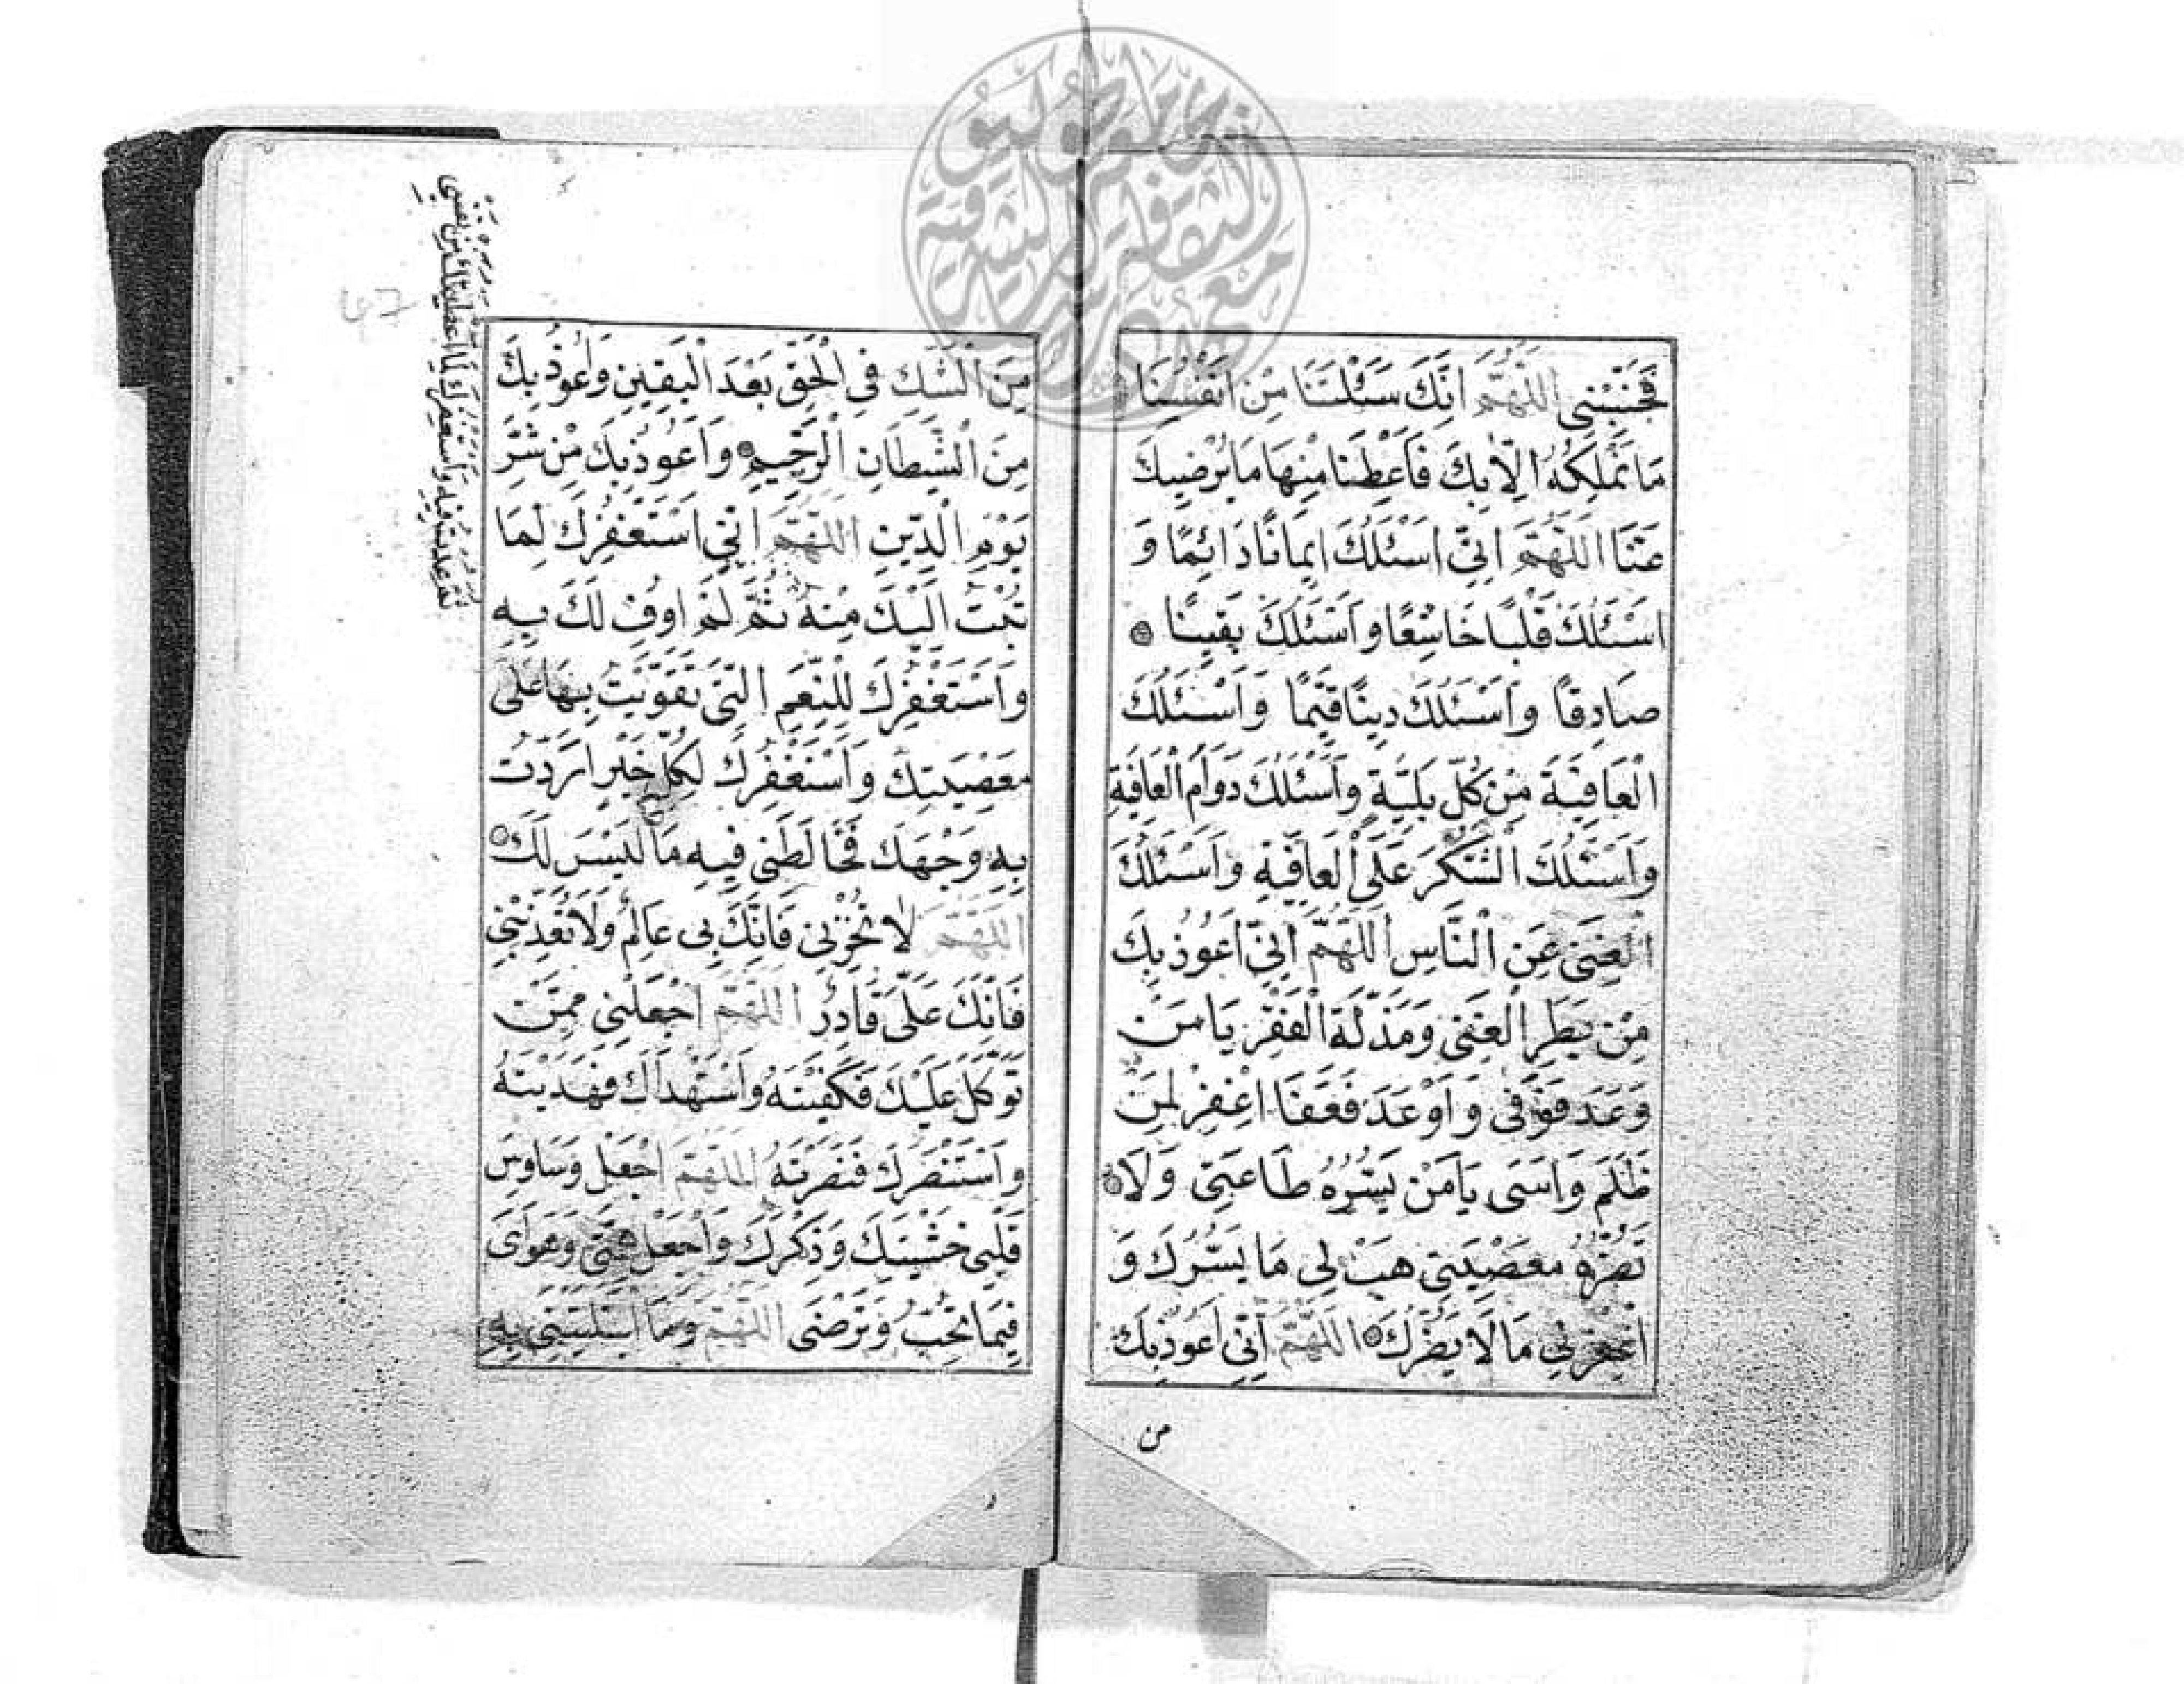 فَجَنِّبْنِي اَللّٰهُمَّ اِنَّكَ سَئَلْتَنَا مِنْ اَنْفُسِنَا
مَا نَمْلِكُهُ اِلَّا بِكَ فَاَعْطِنَا مِنْهَا مَا يُرْضِيكَ
عَنَّا اَللّٰهُمَّ اِنِّي اَسْئَلُكَ اِيمَانًا دَائِمًا وَ
اَسْئَلُكَ قَلْبًا خَاشِعًا وَاَسْئَلُكَ يَقِينًا
صَادِقًا وَاَسْئَلُكَ دِينًا قَيِّمًا وَاَسْئَلُكَ
الْعَافِيَةَ مِنْ كُلِّ بَلِيَّةٍ وَاَسْئَلُكَ دَوَامَ الْعَافِيَةِ
وَاَسْئَلُكَ الشُّكْرَ عَلَى الْعَافِيَةِ وَاَسْئَلُكَ
الْغِنَى عَنِ النَّاسِ اَللّٰهُمَّ اِنِّي اَعُوذُ بِكَ
مِنْ بَطَرِ الْغِنَى وَمَذَلَّةِ الْفَقْرِ يَا مَنْ
وَعَدَ فَوَفَى وَاَوْعَدَ فَعَفَا اِغْفِرْ لِمَنْ
ظَلَمَ وَاَسَى يَا مَنْ يَسُرُّهُ طَاعَتِي وَلَا
تَضُرُّهُ مَعْصِيَتِي هَبْ لِي مَا يَسُرُّكَ وَ
اغْفِرْ لِي مَا لَا يَضُرُّكَ اَللّٰهُمَّ اِنِّي اَعُوذُ بِكَ
من
مِنَ الشَّكِّ فِي الْحَقِّ بَعْدَ الْيَقِينِ وَاَعُوذُ بِكَ
مِنَ الشَّيْطَانِ الرَّجِيمِ وَاَعُوذُ بِكَ مِنْ شَرِّ
يَوْمِ الدِّينِ اَللّٰهُمَّ اِنِّي اَسْتَغْفِرُكَ لِمَا
تُبْتُ اِلَيْكَ مِنْهُ ثُمَّ لَمْ اُوفِ لَكَ بِهِ
وَاَسْتَغْفِرُكَ لِلنِّعَمِ الَّتِي تَقَوَّيْتُ بِهَا عَلَى
مَعْصِيَتِكَ وَاَسْتَغْفِرُكَ لِكُلِّ خَيْرٍ اَرَدْتُ
بِهِ وَجْهَكَ فَخَالَطَنِي فِيهِ مَا لَيْسَ لَكَ
اَللّٰهُمَّ لَا تُخْزِنِي فَاِنَّكَ بِي عَالِمٌ وَلَا تُعَذِّبْنِي
فَاِنَّكَ عَلَيَّ قَادِرٌ اَللّٰهُمَّ اجْعَلْنِي مِمَّنْ
تَوَكَّلَ عَلَيْكَ فَكَفَيْتَهُ وَاسْتَهْدَاكَ فَهَدَيْتَهُ
وَاسْتَنْصَرَكَ فَنَصَرْتَهُ اَللّٰهُمَّ اجْعَلْ وَسَاوِسَ
قَلْبِي خَشْيَتَكَ وَذِكْرَكَ وَاجْعَلْ هِمَّتِي وَهَوَايَ
فِيمَا تُحِبُّ وَتَرْضَى اَللّٰهُمَّ وَمَا ابْتَلَيْتَنِي بِهِ
وَاَسْتَغْفِرُكَ لِمَا اَعْطَيْتُكَ مِنْ نَفْسِي
ثُمَّ عُدْتُ فِيهِ